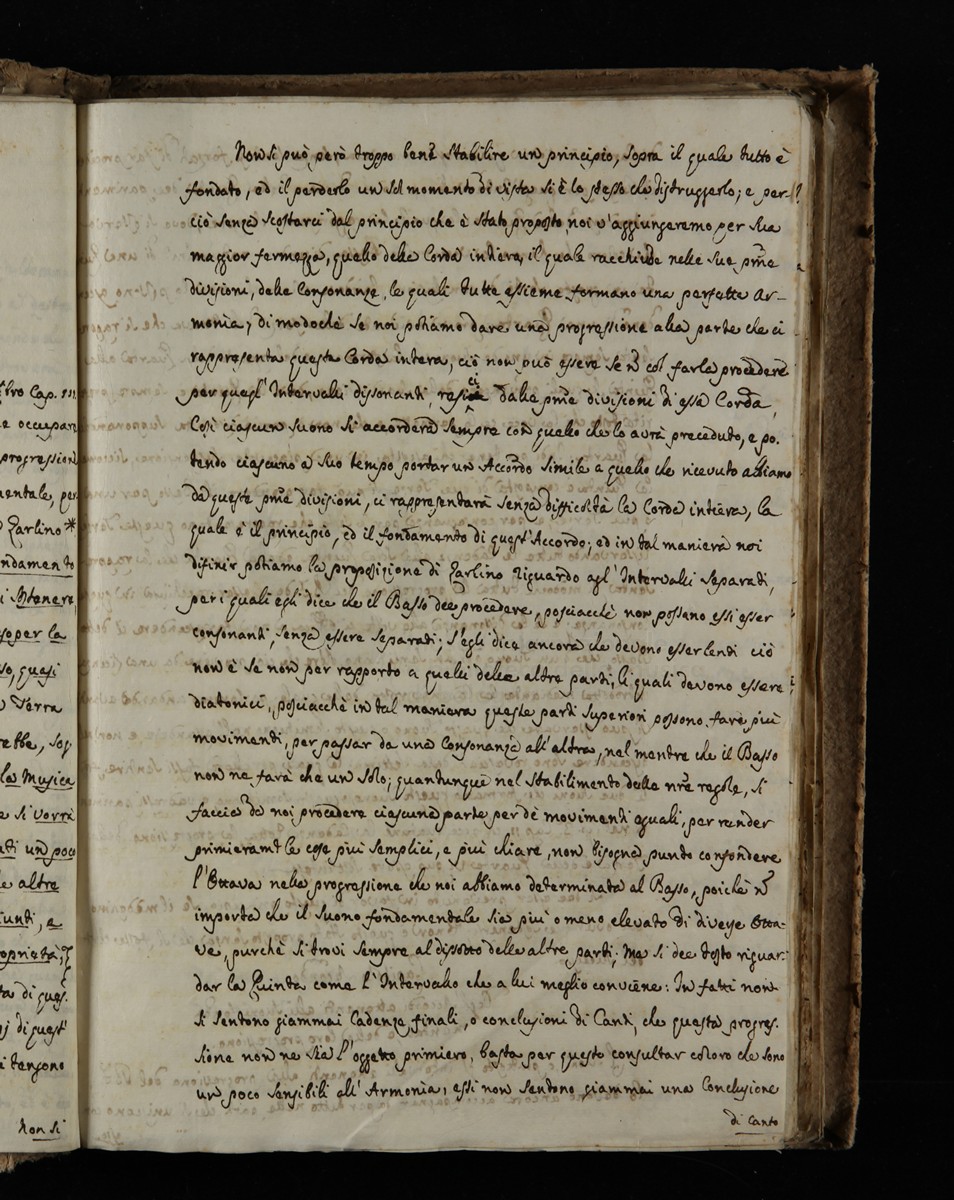 tro Cap. III
e occupan
progression
mentale, per
Zarlino *
ndamento
i sostenere
so per la
so, quasi
Terra
rebbe, sop
la Musica
e si vorrà
ati un poco
le altre
iunti, e
oprietà,
ta di ques.
di quest'
i tengono
Non si
Non si può però troppo bene stabilire un principio, sopra il quale tutto è
fondato, ed il perderlo un sol momento di vista si è lo stesso che distruggerlo; e per-
ciò senza scostarci dal principio che è stato proposto noi v'aggiungeremo per sua
maggior fermezza, quello della Corda intiera, il quale racchiude nelle sue pme
divisioni, delle Consonanze, le quali tutte assieme formano una perfetta Ar-
monia; di modochè se noi potiamo dare una progressione alla parte che ci
rappresenta questa Corda intera, ciò non può essere se ñ col farla procedere
per quegl' Intervalli dissonanti, dalle pme divisioni di essa Corda,
Così ciascun suono si accorderà sempre con quello che lo avrà preceduto, e po.
tendo ciascuno a suo tempo portar un Accordo simile a quello che ricevuto abbiamo
da queste pme divisioni, ci rappresentarà senza difficoltà la Corda intiera, la
quale è il principio, ed il fondamento di quest'Accordo; ed in tal maniera noi
difinir potiamo la proposizione di Zarlino riguardo agl' Intervalli separati,
per i quali egli dice che il Basso dee procedere, posciacchè non possano essi esser
consonanti, senza essere separati; s'egli dice ancora che devono esser lenti ciò
non è se non per rapporto a quelli delle altre parti, li quali devono essere
diatonici, posciacchè in tal maniera queste parti superiori possono fare più
movimenti, per passar da una Consonanza all'altra, nel mentre che il Basso
non ne farà che un solo; quantunque nel stabilimento delle nre regole, si
faccia da noi procedere ciascuna parte per dè movimenti eguali, per render
primieramte le cose più semplici, e più chiare, non bisogna punto confondere
l'Ottava nella progressione che noi abbiamo determinata al Basso, poichè ñ
importa che il suono fondamentale sia più o meno elevato di diverse Otta-
ve, purchè si trovi sempre al dissotto delle altre parti; Ma si dee tosto riguar-
dar la Quinta come l'Intervallo che a lui meglio conviene: In fatti non
si sentono giammai Cadenze finali, o conclusioni di Canti, che questa progres.
sione non ne sia l'oggetto primiero, basta per questo consultar coloro che sono
un poco sensibili all' Armonia; essi non sentono giammai una Conclusione
di Canto